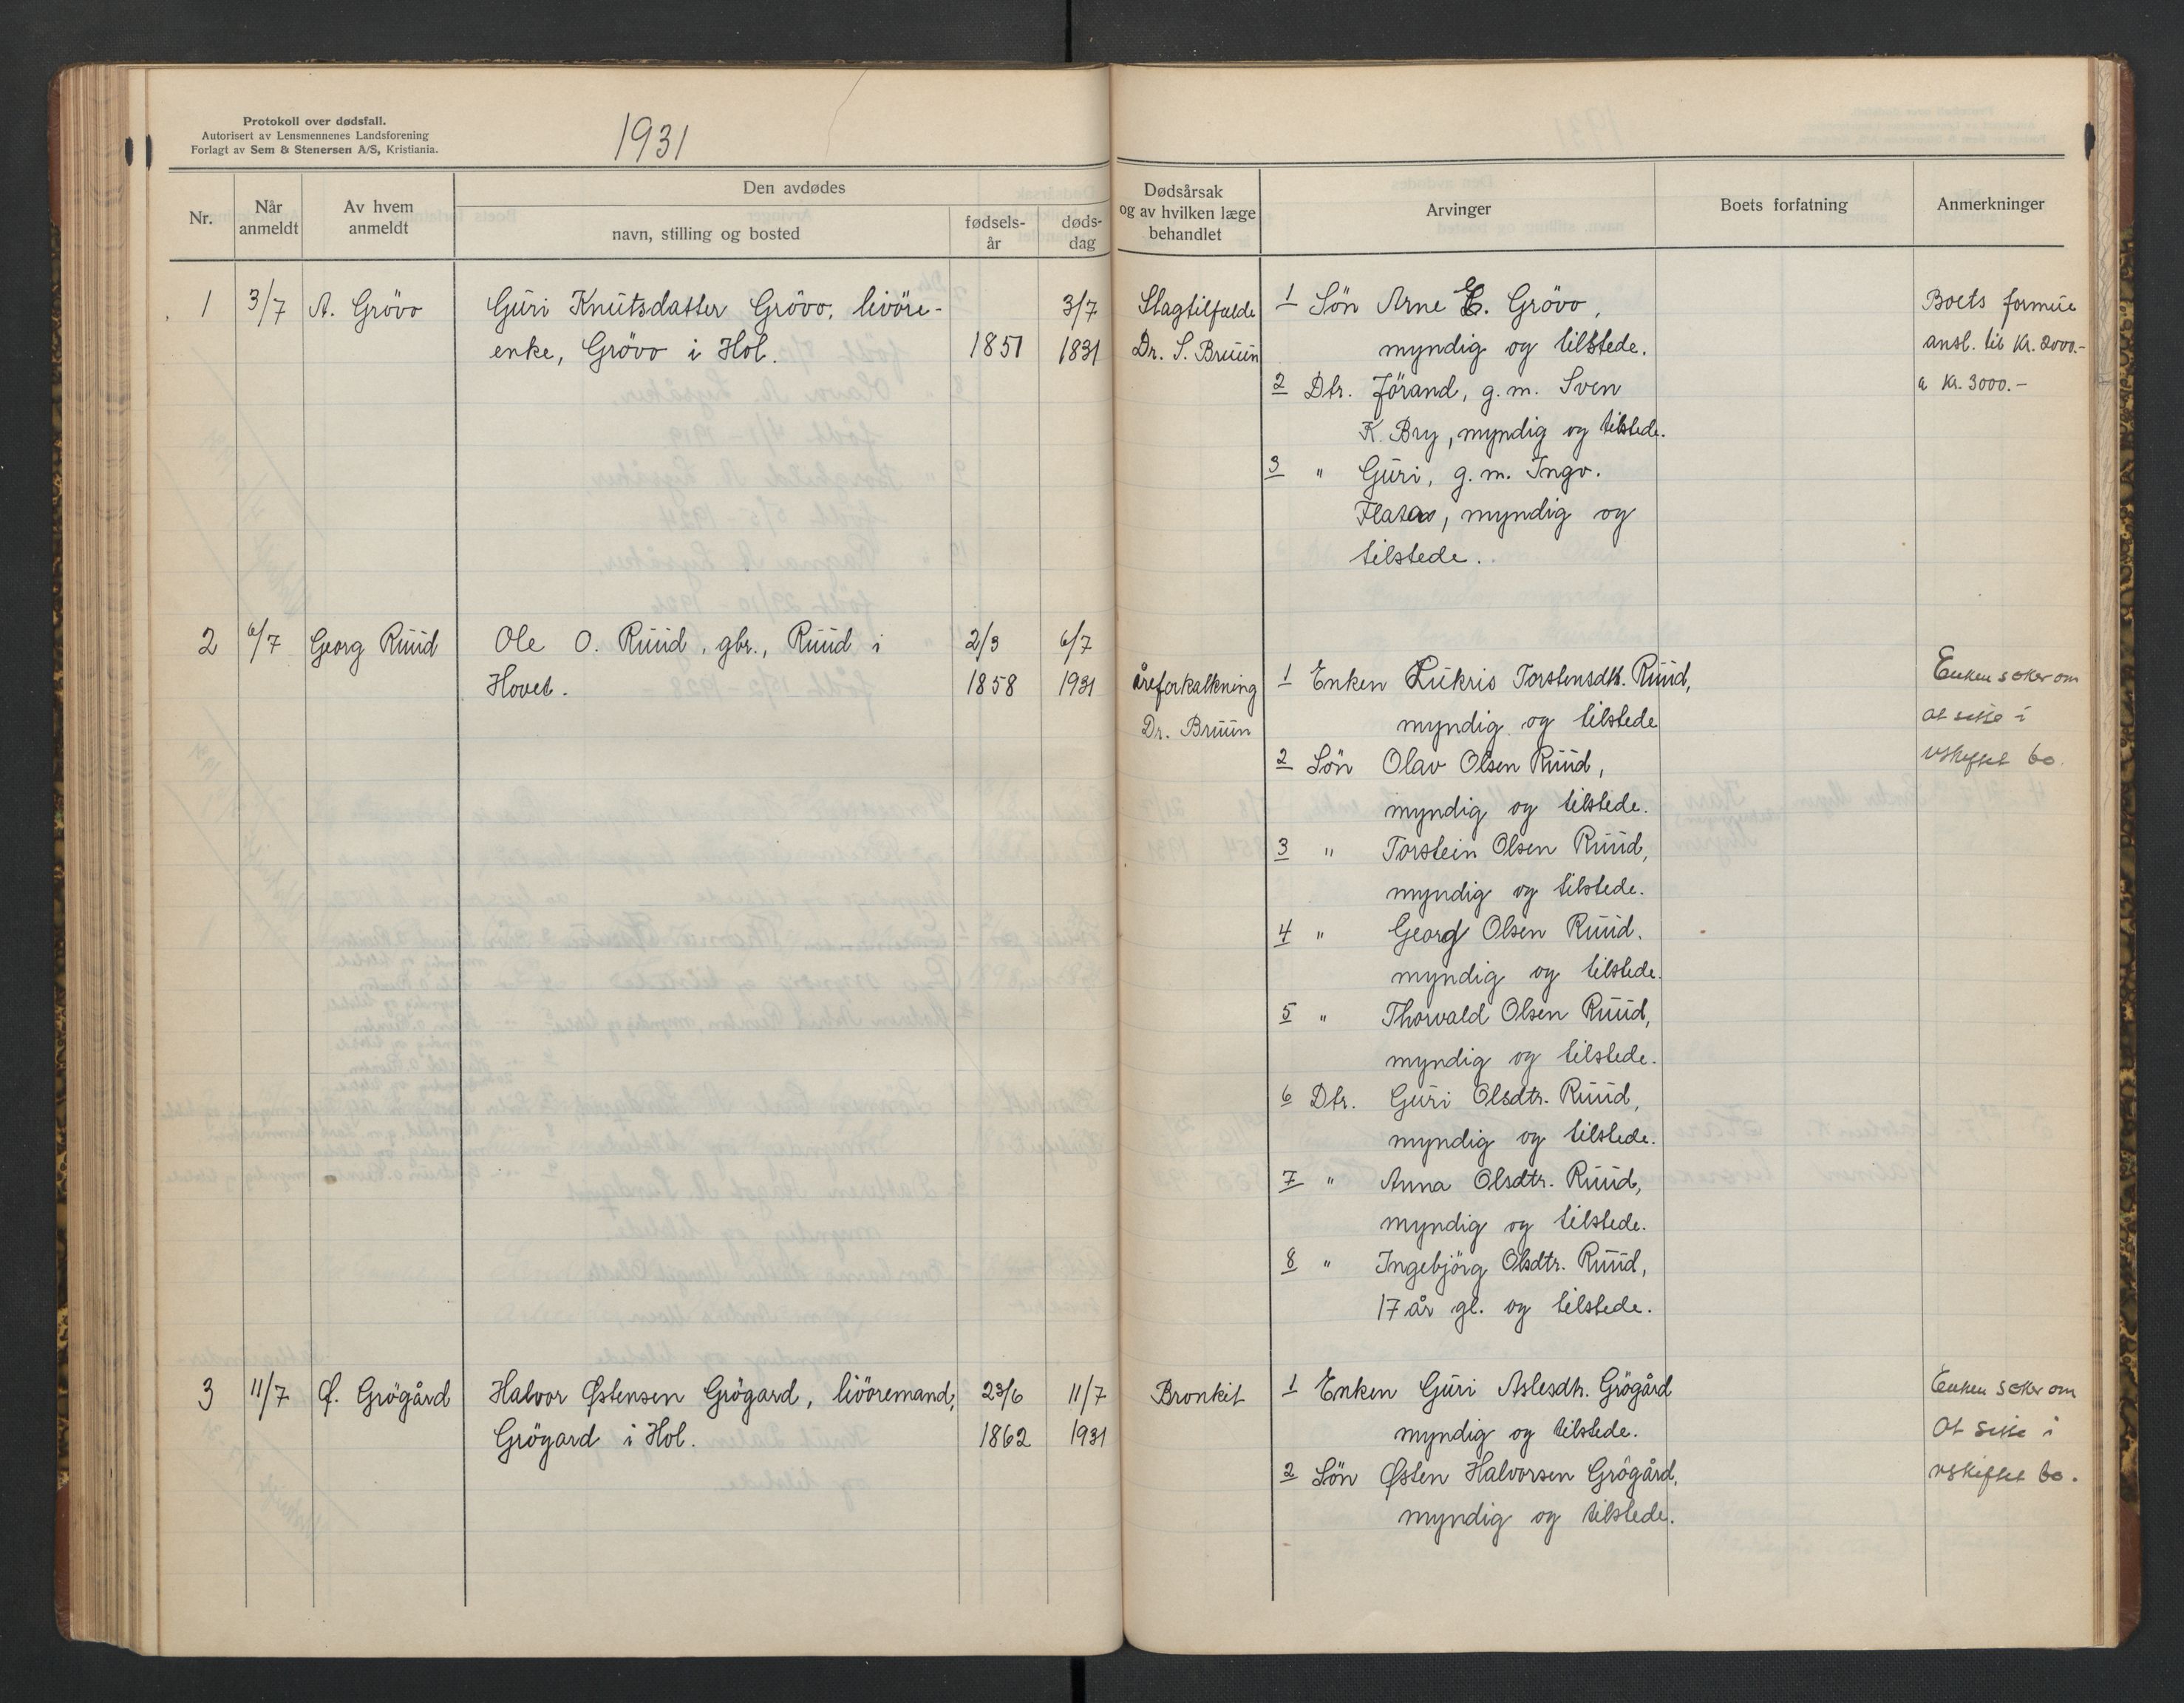 Protokoll over dødsfall.
Autorisert av Lensmennenes Landsforening
Forlagt av Sem & Stenersen A/S, Kristiania.
1931
Nr.
Når anmeldt
Av hvem anmeldt
Den avdødes
navn, stilling og bosted
fødselsår
dødsdag
Dødsårsak
og av hvilken læge
behandlet
Arvinger
Boets forfatning
Anmerkninger
1 3/7 A. Grövo Guri Knutsdatter Grövo, livöre- 3/7
enke, Grövo i Hol. 1851 1831
Slagtilfælde
Dr. S. Bruun
1 Sön Arne E. Grövo,
myndig og tilstede.
2 Dtr. Jörand, g.m. Sven
K. Bry, myndig og tilstede.
3 " Guri, g.m. Ingv.
myndig og
tilstede.
Boets formue
ansl. til kr. 2000.-
a kr. 3000.-
2 6/7 Georg Ruud Ole O. Ruud, gbr., Ruud i 2/3 6/7
Hovet. 1858 1931
åreforkalkning
Dr. Bruun
1 Enken Lukris Torstensdtr. Ruud,
myndig og tilstede
2 Sön Olav Olsen Ruud,
myndig og tilstede.
3 " Torstein Olsen Ruud,
myndig og tilstede.
4 " Georg Olsen Ruud.
myndig og tilstede.
5 " Thorvald Olsen Ruud,
myndig og tilstede.
6 Dtr. Guri Olsdtr. Ruud,
myndig og tilstede.
7 " Anna Olsdtr. Ruud,
myndig og tilstede.
8 " Ingebjörg Olsdtr. Ruud,
17 år gl. og tilstede.
Enken söker om
at sitte i
uskiftet bo.
3 11/7 Ø. Grögård Halvor Østensen Grögard, livöremand, 23/6 11/7
Grögard i Hol. 1862 1931
Bronkit
1 Enken Guri Aslesdtr. Grögård
myndig og tilstede.
2 Sön Østen Halvorsen Grögård,
myndig og tilstede.
Enken söker om
at sitte i
uskiftet bo.